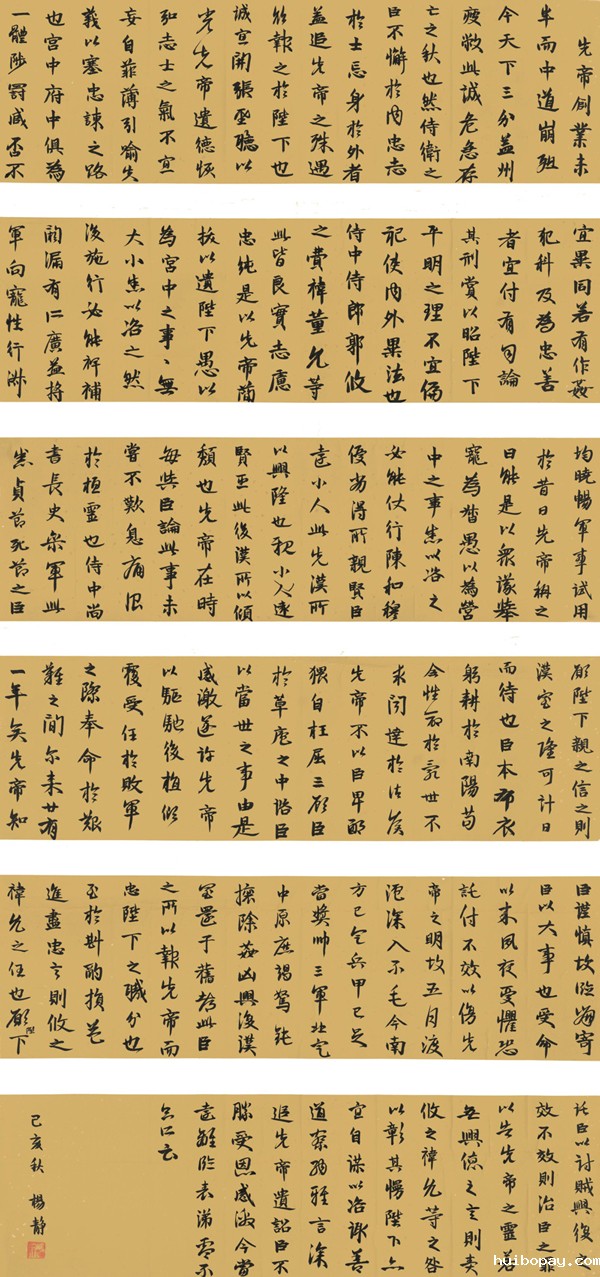 先帝創業未
半而中道崩殂
今天下三分益州
疲敝此誠危急存
亡之秋也然侍衛之
臣不懈於內忠志
於士忘身於外者
蓋追先帝之殊遇
欲報之於陛下也
誠宜開張聖聽以
光先帝遺德恢
弘志士之氣不宜
妄自菲薄引喻失
義以塞忠諫之路
也宮中府中俱為
一體陟罰臧否不
宜異同若有作姦
犯科及為忠善
者宜付有司論
其刑賞以昭陛下
平明之理不宜偏
私使內外異法也
侍中侍郎郭攸
之費禕董允等
此皆良實志慮
忠純是以先帝簡
拔以遺陛下愚以
為宮中之事、無
大小悉以咨之然
後施行必能裨補
闕漏有所廣益將
軍向寵性行淑
均曉暢軍事試用
於昔日先帝稱之
曰能是以眾議舉
寵為督愚以為營
中之事悉以咨之
必能使行陳和穆
優劣得所親賢臣
遠小人此先漢所
以興隆也親小人遠
賢臣此後漢所以傾
頹也先帝在時
每與臣論此事未
嘗不歎息痛恨
於桓靈也侍中尚
書長史參軍此
悉貞節死節之臣
願陛下親之信之則
漢室之隆可計日
而待也臣本布衣
躬耕於南陽苟
全性命於亂世不
求聞達於諸侯
先帝不以臣卑鄙
猥自枉屈三顧臣
於草廬之中諮臣
以當世之事由是
感激遂許先帝
以驅馳後值傾
覆受任於敗軍
之際奉命於艱
難之間爾來廿有
一年矣先帝知
臣謹慎故臨崩寄
臣以大事也受命
以來夙夜憂懼恐
託付不效以傷先
帝之明故五月渡
瀘深入不毛今南
方已定兵甲已足
當獎帥三軍北定
中原庶竭駑鈍
攘除姦凶興復漢
室還于舊都此臣
之所以報先帝而
忠陛下之職分也
至於斟酌損益
進盡忠言則攸之
禕允之任也願陛下
託臣以討賊興復之
效不效則治臣之罪
以告先帝之靈若
無興德之言則責
攸之禕允等之咎
以彰其慢陛下亦
宜自謀以咨諏善
道察納雅言深
追先帝遺詔臣不
勝受恩感激今當
遠離臨表涕零不
知所云
己亥秋 楊靜
huibopay.com